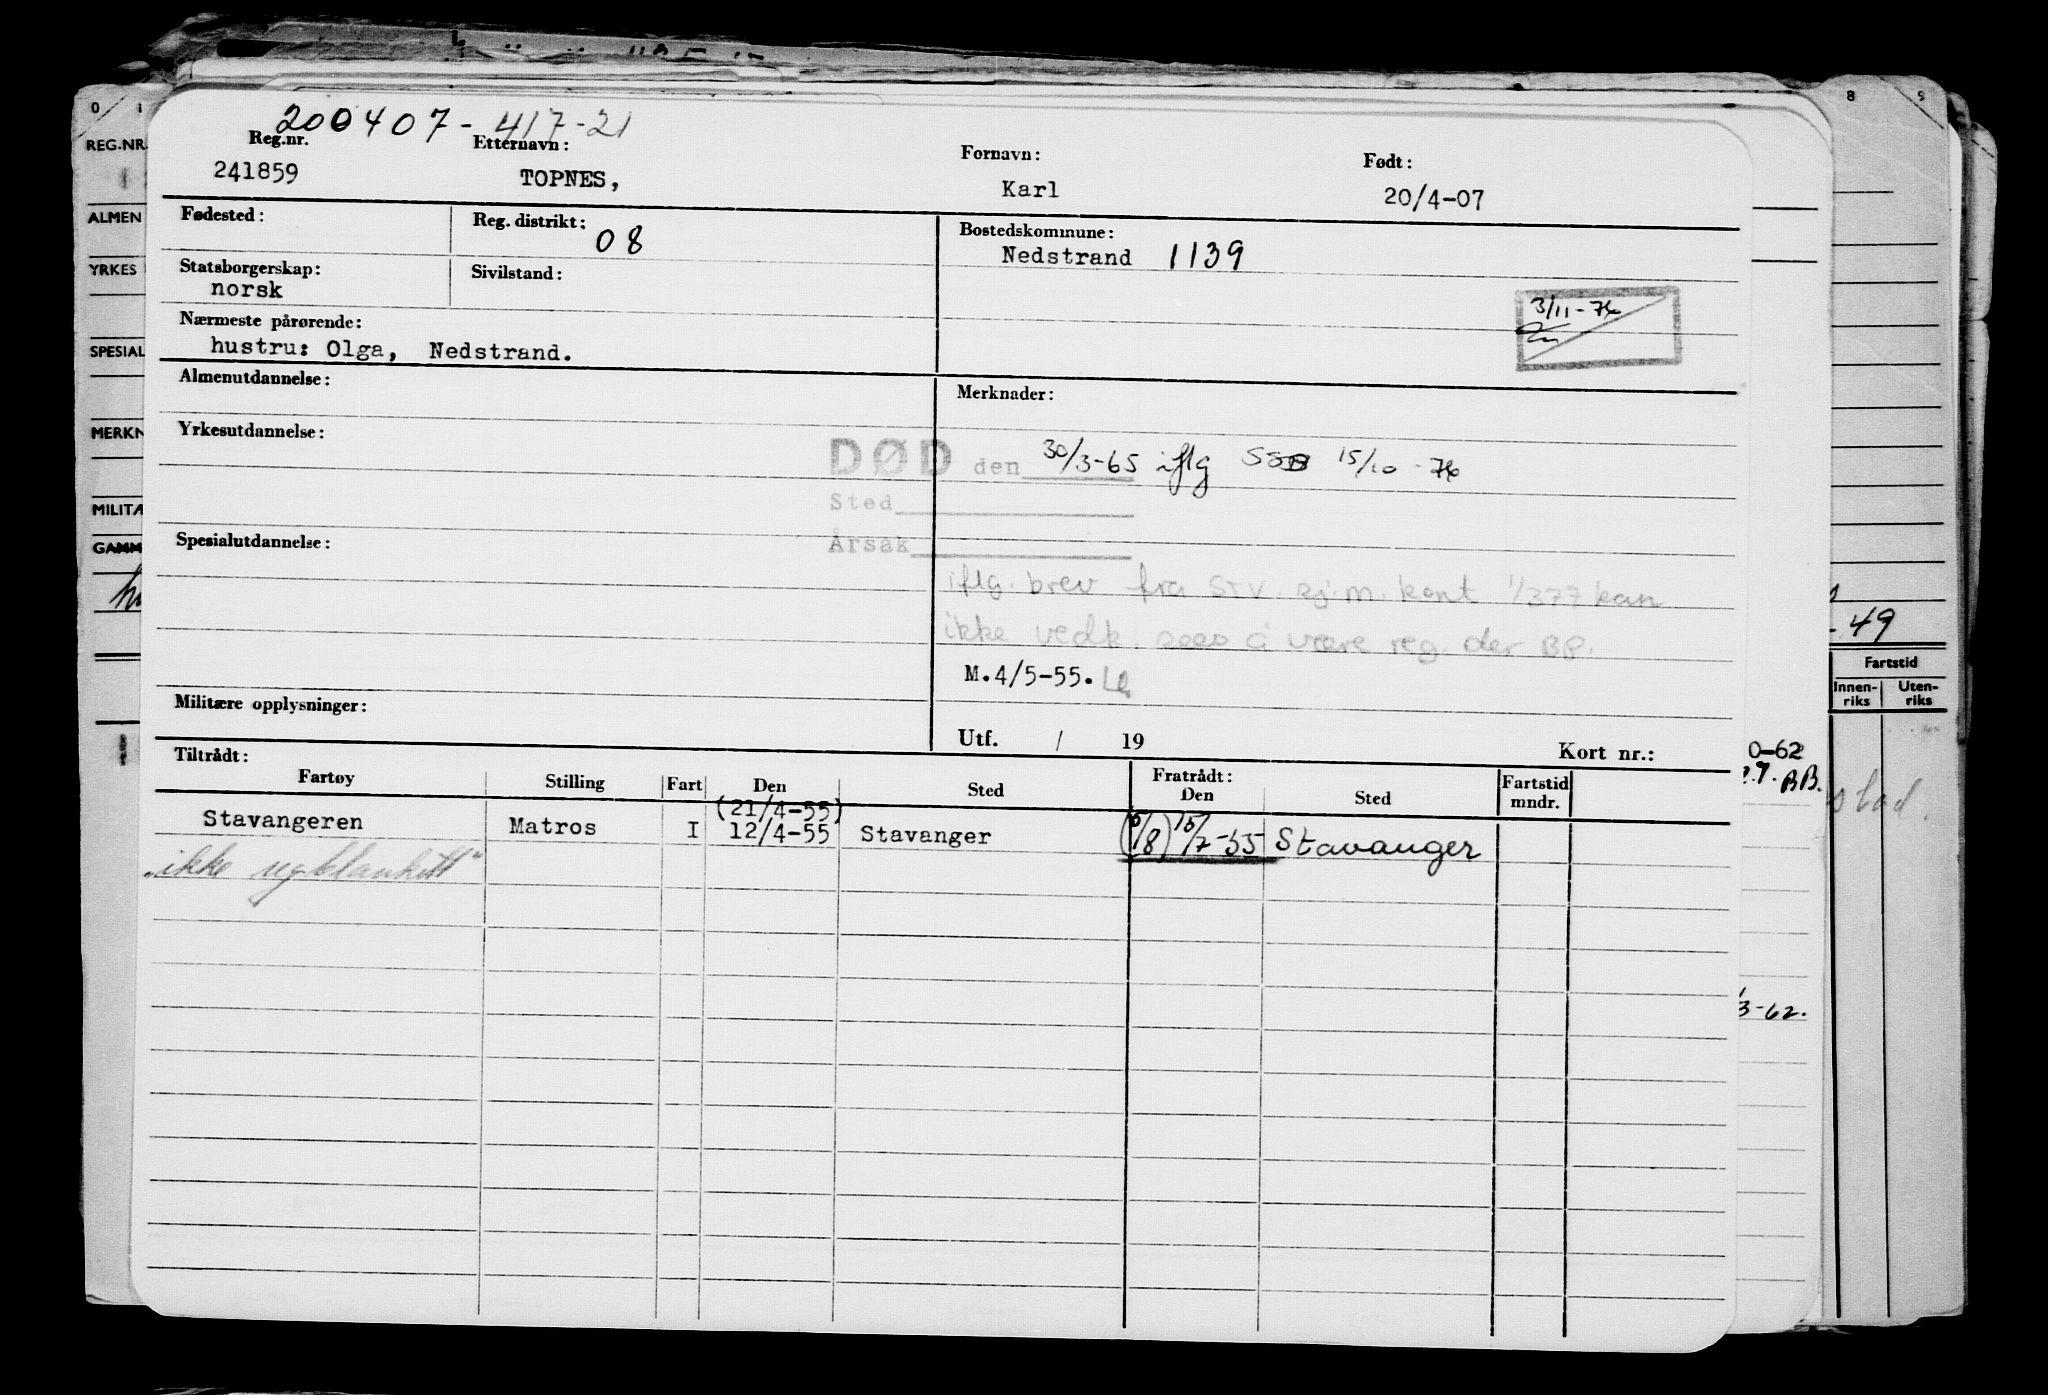 200407-417-21
Reg.nr. Etternavn: Fornavn: Født:
241859 TOPNES, Karl 20/4-07
Fødested: Reg. distrikt: 08 Bostedskommune:
Nedstrand 1139
Statsborgerskap: Sivilstand:
norsk
3/11-76
Nærmeste pårørende:
hustru: Olga, Nedstrand.
Almenutdannelse: Merknader:
Yrkesutdannelse:
DØD den 30/3-65 iflg SSB 15/10-76
Sted
Årsak
Spesialutdannelse:
iflg. brev fra STV. sj.m. kont 1/377 kan
ikke vedk. sees å være reg. der BP.
M.4/5-55.
Militære opplysninger:
Utf. / 19 Kort nr.:
Tiltrådt: Fratrådt:
Fartøy Stilling Fart Den Sted Den Sted Fartstid mndr.
(21/4-55)
Stavangeren Matros I 12/4-55 Stavanger 15/7-55 Stavanger
"ikke
0 1 8 9
REG.NR.
ALMEN
YRKES
SPESIAL
MERKN
MILITÆ
GAMM
- 49
Fartstid
Innen-riks Uten-riks
0-62
BB.
3-62.